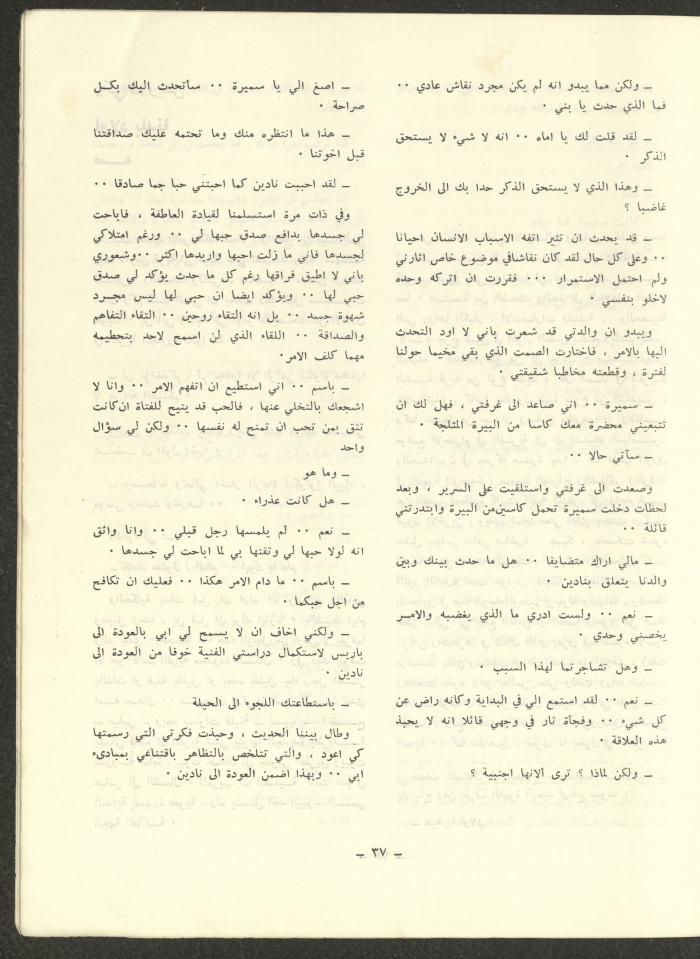 ــ ولكن مما يبدو انه لم يكن مجرد نقاش عادي ٠٠
فما الذي حدث يا بني ٠
ــ لقد قلت لك يا اماه ٠٠ انه لا شيء لا يستحق
الذكر ٠
ــ وهذا الذي لا يستحق الذكر حدا بك الى الخروج
غاضبا ؟
ــ قد يحدث ان تثير اتفه الاسباب الانسان احيانا
٠٠ وعلى كل حال لقد كان نقاشافي موضوع خاص اثارني
ولم احتمل الاستمرار ٠٠٠ فقررت ان اتركه وحده
لاخلو بنفسي ٠
ويبدو ان والدتي قد شعرت باني لا اود التحدث
اليها بالامر ، فاختارت الصمت الذي بقي مخيما حولنا
لفترة ، وقطعته مخاطبا شقيقتي ٠
ــ سميرة ٠٠ اني صاعد الى غرفتي ، فهل لك ان
تتبعيني محضرة معك كاسا من البيرة المثلجة ٠
ــ سآتي حالا ٠٠
وصعدت الى غرفتي واستلقيت على السرير ، وبعد
لحظات دخلت سميرة تحمل كاسين من البيرة وابتدرتني
قائلة ٠٠
ــ مالي اراك متضايقا ٠٠ هل ما حدث بينك وبين
والدنا يتعلق بنادين ٠
ــ نعم ٠٠ ولست ادري ما الذي يغضبه والامــر
يخصني وحدي ٠
ــ وهل تشاجرتما لهذا السبب ٠
ــ نعم ٠٠ لقد استمع الي في البداية وكانه راض عن
كل شيء ٠٠ وفجأة ثار في وجهي قائلا انه لا يحبذ
هذه العلاقة ٠
ــ ولكن لماذا ؟ ترى ألانها اجنبية ؟
ــ اصغ الي يا سميرة ٠٠ سأتحدث اليك بكــل
صراحة ٠
ــ هذا ما انتظره منك وما تحتمه عليك صداقتنا
قبل اخوتنا ٠
ــ لقد احببت نادين كما احبتني حبا جما صادقا ٠٠
وفي ذات مرة استسلمنا لقيادة العاطفة ، فاباحت
لي جسدها بدافع صدق حبها لي ٠٠ ورغم امتلاكي
لجسدها فاني ما زلت احبها واريدها اكثر ٠٠وشعوري
باني لا اطيق فراقها رغم كل ما حدث يؤكد لي صدق
حبي لها ٠٠ ويؤكد ايضا ان حبي لها ليس مجــرد
شهوة جسد ٠٠ بل انه التقاء روحين ٠٠ التقاء التفاهم
والصداقة ٠٠ اللقاء الذي لن اسمح لاحد بتحطيمه
مهما كلف الامر٠
ــ باسم ٠٠ اني استطيع ان اتفهم الامر ٠٠ وانا لا
اشجعك بالتخلي عنها ، فالحب قد يتيح للفتاة ان كانت
تثق بمن تحب ان تمنح له نفسها ٠٠ ولكن لي سؤال
واحد
ــ وما هو
ــ هل كانت عذراء ٠
ــ نعم ٠٠ لم يلمسها رجل قبلي ٠٠ وانا واثق
انه لولا حبها لي وثقتها بي لما اباحت لي جسدها ٠
ــ باسم ٠٠ ما دام الامر هكذا ٠٠ فعليك ان تكافح
من اجل حبكما ٠
ــ ولكني اخاف ان لا يسمح لي ابي بالعودة الى
باريس لاستكمال دراستي الفنية خوفا من العودة الى
نادين ٠
ــ باستطاعتك اللجوء الى الحيلة
وطال بيننا الحديث ، وحبذت فكرتي التي رسمتها
كي اعود ، والتي تتلخص بالتظاهر باقتناعي بمبادىء
ابي ٠٠ وبهذا اضمن العودة الى نادين ٠
ــ ٣٧ ــ